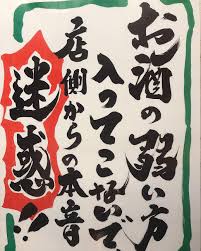 お酒の弱い方
入ってこないで
店側からの本音
迷惑!!